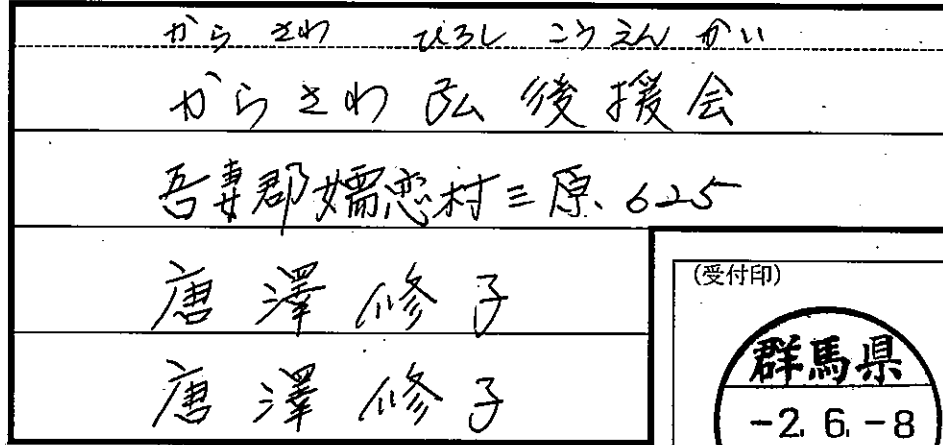 からさわ ひろし こうえんかい
からさわ弘後援会
吾妻郡嬬恋村三原625
唐澤修子
唐澤修子
(受付印)
群馬県
-2.6.-8